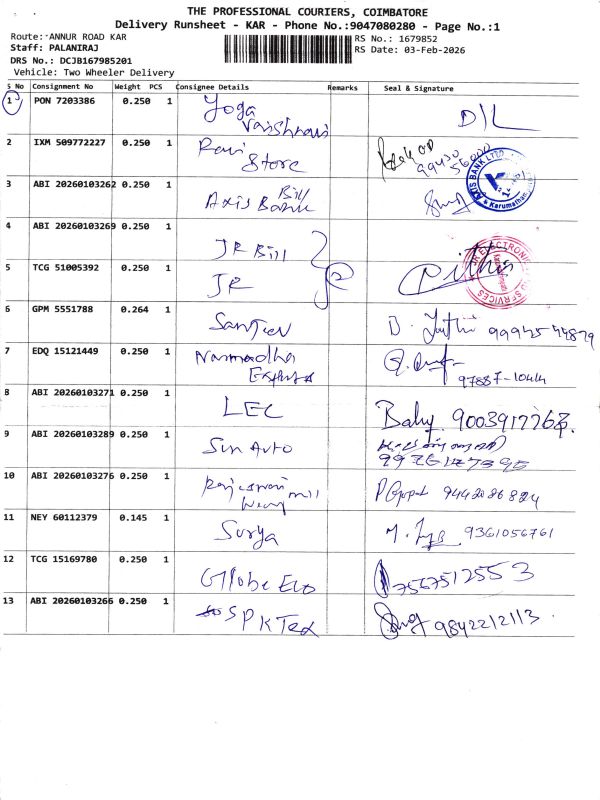 THE PROFESSIONAL COURIERS, COIMBATORE
Delivery Runsheet - KAR - Phone No.:9047080280 - Page No.:1
Route: ANNUR ROAD KAR RS No.: 1679852
Staff: PALANIRAJ RS Date: 03-Feb-2026
DRS No.: DCJB167985201
Vehicle: Two Wheeler Delivery
S No Consignment No Weight PCS Consignee Details Remarks Seal & Signature
1 PON 7203386 0.250 1 Yoga
Vaishnavi D/L
2 IXM 509772227 0.250 1 Ravi
Store
3 ABI 20260103262 0.250 1 Axis Bank Bill
AXIS BANK LTD
Karumathampatti
4 ABI 20260103269 0.250 1 JR Bill
5 TCG 51005392 0.250 1 JR
JR ELECTRONICS
SERVICES
6 GPM 5551788 0.264 1 Sanjeev 99945 44879
7 EDQ 15121449 0.250 1 Narmadha
Exports
8 ABI 20260103271 0.250 1 LEC Baby 9003917767
9 ABI 20260103289 0.250 1 Sun Auto
10 ABI 20260103276 0.250 1 Rajeswari mill
P Gopal 9442086824
11 NEY 60112379 0.145 1 Surya 9361056761
12 TCG 15169780 0.250 1 Globe Evo 7567512553
13 ABI 20260103266 0.250 1 SPK Tex 9842212113